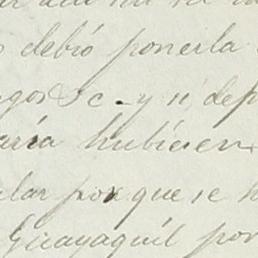 debió ponerla
gos &c. y si dep
aría hubiesen
lar porque se h
Guayaquil por